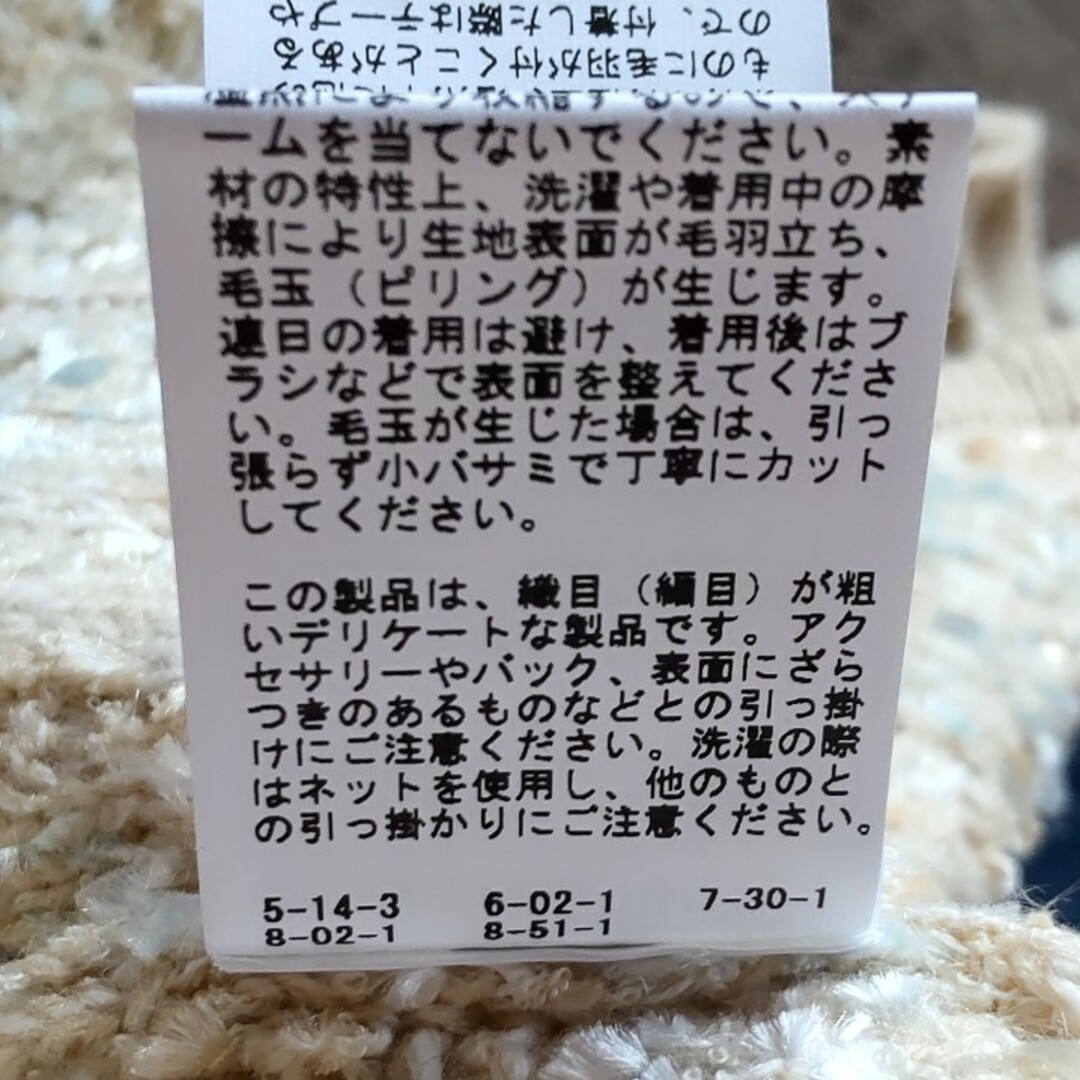 ものに毛羽が付くことがある
ので、付着した際はテープや
ームを当てないでください。素
材の特性上、洗濯や着用中の摩
擦により生地表面が毛羽立ち、
毛玉（ピリング）が生じます。
連日の着用は避け、着用後はブ
ラシなどで表面を整えてくださ
い。毛玉が生じた場合は、引っ
張らず小バサミで丁寧にカット
してください。
この製品は、織目（編目）が粗
いデリケートな製品です。アク
セサリーやバック、表面にざら
つきのあるものなどとの引っ掛
けにご注意ください。洗濯の際
はネットを使用し、他のものと
の引っ掛かりにご注意ください。
5-14-3 6-02-1 7-30-1
8-02-1 8-51-1